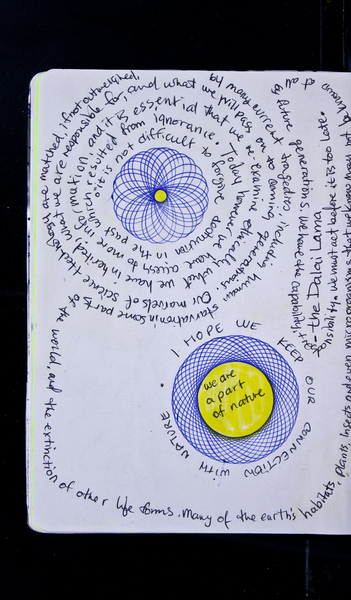 it is not difficult to forgive destruction in the past
which resulted from ignorance. Today however we have access to more
information, and it is essential that we re examine ethically what we have inherited,
what we are responsible for, and what we will pass on to coming generations.
Our marvels of science & technology are matched, if not outweighed,
by many current tragedies including human starvation in some parts of
the world, and the extinction of other life forms. Many of the earth's habitats,
plants, insects and even microorganisms that we know may not be known at all
by future generations. We have the capability, & resp-
onsibility. we must act before it is too late
- the Dalai Lama
I HOPE WE KEEP OUR CONNECTION WITH NATURE
we are
a part
of nature